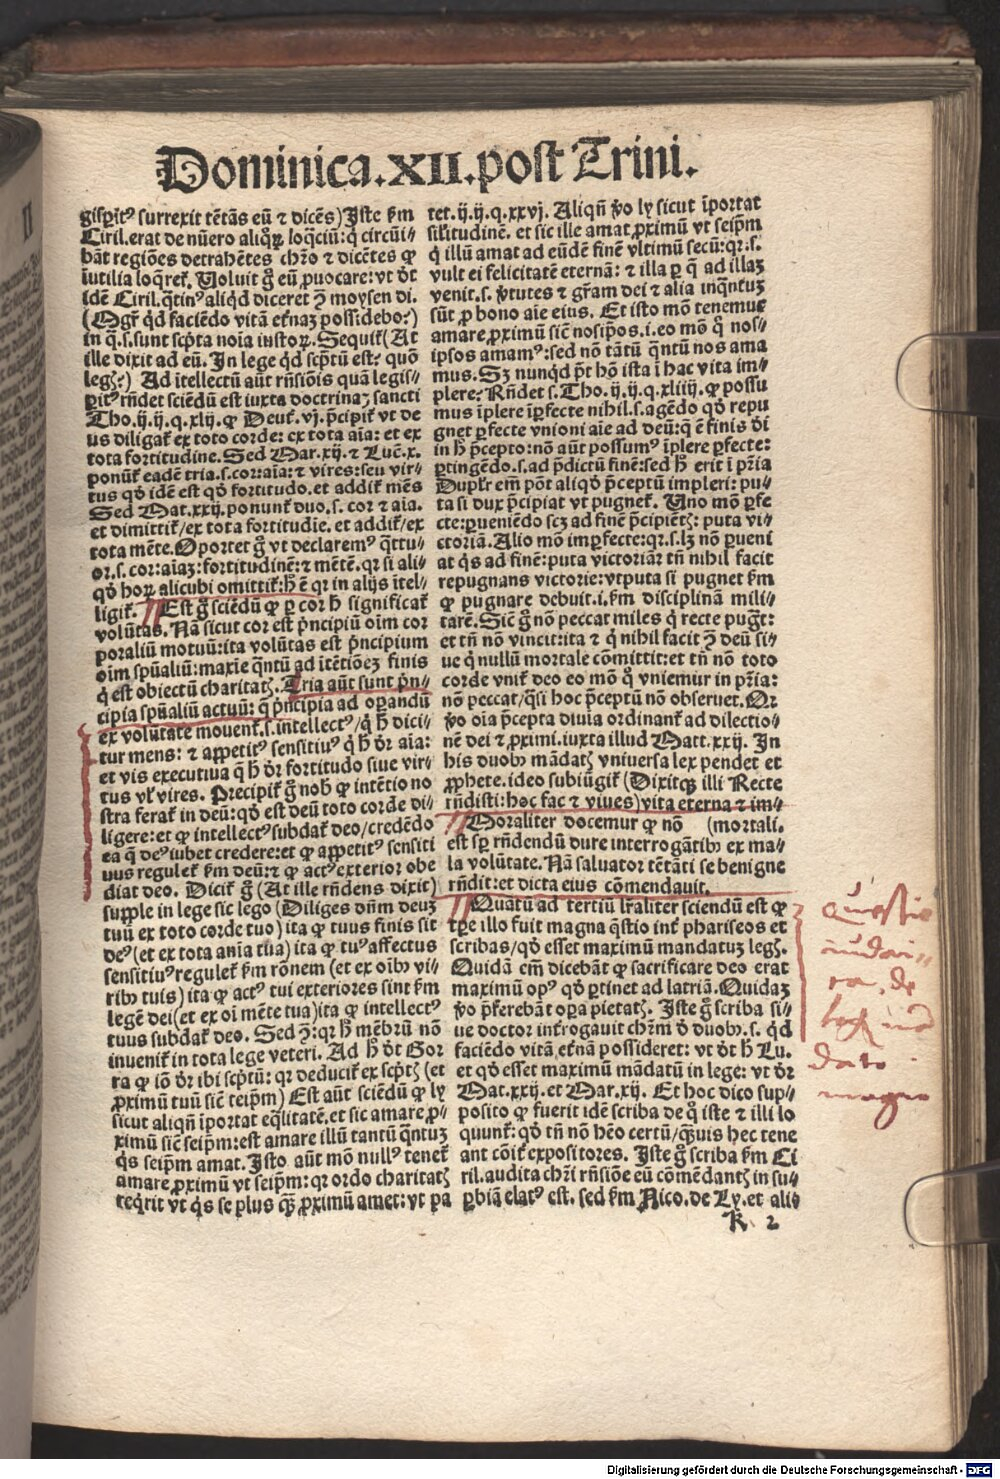 Dominica.XII.post Trini.
gisꝑit⁹ surrexit tētās eū ⁊ dicēs) Iste ẜm
Ciril.erat de nūero aliqꝝ loq̄ciū:q̇ circūi⸗
bāt regiōes detrahētes chr̄o ⁊ dicētes ꝙ
īutilia loq̄ret̉. Voluit g̊ eū ꝓuocare:vt dt̄
idē Ciril.q̄tin⁹ aliqd̉ diceret ꝯ̄ moysen di.
(Mgr̄ qd̉ faciēdo vitā et̉naꝫ possidebo?)
in q̄.s.sunt scp̄ta noīa iustoꝝ. Sequit̉ (At
ille dixit ad eū. In lege qd̉ scp̄tū est? quō
legꝭ?) Ad ītellectū aūt rn̄siōis quā legis⸗
ꝑit⁹ rn̄det sciēdū est iuxta doctrinaꝫ sancti
Tho.ij.ij.q.xlij.ꝙ Deut̉. vj.p̄cipit̉ vt de
us diligat̉ ex toto corde: ex tota aīa: et ex
tota fortitudine. Sed Mar.xij.⁊ Luc̄.x.
ponūt̉ eadē tria.s.cor:aīa:⁊ vires:seu vir⸗
tus qd̉ idē est qd̉ fortitudo.et addit̉ mēs
Sed Mat.xxij.ponunt̉ duo.s. cor ⁊ aīa.
et dimittit̉/ex tota fortitudīe. et addit̉/ex
tota mēte.Oportet g̊ vt declarem⁹ q̄ttu⸗
or.s. cor:aīaꝫ:fortitudinē:⁊ mētē.qꝛ si ali⸗
qd̉ hoꝝ alicubi omittit̉:h̄ ē qꝛ in alijs ītel⸗
ligit̉. Est g̊ sciēdū ꝙ ꝑ cor h̄ significat̉
volūtas. Nā sicut cor est p̄ncipiū oīm cor
poraliū motuū:ita volūtas est p̄ncipium
oīm spūaliū:maxīe q̄ntū ad ītētiōeꝫ finis
q̇ est obiectū charitatꝭ. Tria aūt sunt p̄n⸗
cipia spūaliū actuū: q̇ p̄ncipia ad oꝑandū
ex volūtate mouent̉.s.intellect⁹/q̇ h̄ dici⸗
tur mens: ⁊ appetit⁹ sensitiu⁹ q̇ h̄ dr̄ aīa:
et vis executiua q̄ h̄ dr̄ fortitudo siue vir⸗
tus vl̉ vires. Precipit̉ g̊ nob̉ ꝙ intētio no
stra ferat̉ in deū:qd̉ est deū toto corde di⸗
ligere:et ꝙ intellect⁹ subdat̉ deo/credēdo
ea q̄ de⁹ iubet credere:et ꝙ appetit⁹ sensiti
uus regulet̉ ẜm deū:⁊ ꝙ act⁹ exterior obe
diat deo. Dicit̉ g̊ (At ille rn̄dens dixit)
supple in lege sic lego (Diliges dn̄m deuꝫ
tuū ex toto corde tuo) ita ꝙ tuus finis sit
de⁹ (et ex tota anīa tua) ita ꝙ tu⁹ affectus
sensitiu⁹ regulet̉ ẜm rōnem (et ex oīb⁹ vi⸗
rib⁹ tuis) ita ꝙ act⁹ tui exteriores sint ẜm
legē dei(et ex oī mēte tua)ita ꝙ intellect⁹
tuus subdat̉ deo. Sed ꝯ̄: qꝛ h̄ mēbrū nō
inuenit̉ in tota lege veteri. Ad h̄ dt̄ Gor
ra ꝙ iō dr̄ ibi scp̄tū: qꝛ deducit̉ ex scp̄tꝭ (et
ꝓximū tuū sic̄ teip̄m) Est aūt sciēdū ꝙ ly
sicut aliqn̄ īportat eq̄litatē.et sic amare ꝓ⸗
ximū sic̄ seip̄m:est amare illū tantū q̄ntuꝫ
q̇s seip̄m amat. Isto aūt mō null⁹ tenet̉
amare ꝓximū vt seip̄m: qꝛ ordo charitatꝭ
req̇rit vt q̇s se plus q̄ꝫ ꝓximū amet: vt pa
tet.ij.ij.q.xxvj. Aliqn̄ v̊o ly sicut īportat
silitudinē. et sic ille amat ꝓximū vt seip̄m
q̇ illū amat ad eūdē finē vltimū secū:qꝛ.s.
vult ei felicitatē eternā: ⁊ illa ꝑ q̄ ad illaꝫ
venit.s. v̊tutes ⁊ gr̄am dei ⁊ alia inq̄ntuꝫ
sūt ꝓ bono aīe eius. Et isto mō tenemur
amare ꝓximū sic̄ nosip̄os.i.eo mō q̊ nos⸗
ipsos amam⁹:sed nō tātū q̄ntū nos ama
mus. Sꝫ nunqd̉ p̄t hō ista ī hac vita im⸗
plere? Rn̄det s.Tho.ij.ij.q.xliiij.ꝙ possu
mus īplere īꝑfecte nihil.s.agēdo qd̉ repu
gnet ꝑfecte vnioni aīe ad deū:q̄ ē finis di
in h̄ p̄cepto:nō aūt possum⁹ īplere ꝑfecte:
ꝑtingēdo.s.ad p̄dictū finē:sed h̄ erit ī pr̄ia
Duplr̄ em̄ pōt aliqd̉ p̄ceptū impleri: pu⸗
ta si dux p̄cipiat vt pugnet̉. Uno mō ꝑfe
cte:ꝑueniēdo scꝫ ad finē p̄cipiētꝭ: puta vi⸗
ctoriā.Alio mō imꝑfecte:qꝛ.s.lꝫ nō ꝑueni
at q̇s ad finē:puta victoriaꝫ tn̄ nihil facit
repugnans victorie:vtputa si pugnet ẜm
ꝙ pugnare debuit.i.ẜm disciplinā mili⸗
tarē. Sic̄ g̊ nō peccat miles q̇ recte pugt̄:
et tn̄ nō vincit:ita ⁊ q̇ nihil facit ꝯ̄ deū si⸗
ue q̇ nullū mortale cōmittit:et tn̄ nō toto
corde vnit̉ deo eo mō q̊ vniemur in pr̄ia:
nō peccat/q̄si hoc p̄ceptū nō obseruet.Qꝛ
v̊o oīa p̄cepta diuīa ordinant̉ ad dilectio⸗
nē dei ⁊ ꝓximi.iuxta illud Matt.xxij. In
his duob⁹ mādatꝭ vniuersa lex pendet et
ꝓphete. ideo subiūgit̉ (Dixitqꝫ illi Recte
rn̄disti:hoc fac ⁊ viues)vita eterna ⁊ im⸗
Moraliter docemur ꝙ nō (mortali.
est sꝑ rn̄dendū dure interrogātib⁹ ex ma⸗
la volūtate. Nā saluator tētāti se benigne
rn̄dit:et dicta eius cōmendauit.
Quātū ad tertiū lr̄aliter sciendū est ꝙ
tꝑe illo fuit magna q̄stio int̉ phariseos et
scribas/qd̉ esset maximū mandatuꝫ legꝭ.
Quidā em̄ dicebāt ꝙ sacrificare deo erat
maximū op⁹ qd̉ ꝑtinet ad latriā.Quidaꝫ
v̊o p̄ferebāt oꝑa pietatꝭ. Iste g̊ scriba si⸗
ue doctor int̉rogauit chr̄m d̉ duob⁹.s. qd̉
faciēdo vitā et̉nā possideret: vt dt̄ h̄ Lu.
et qd̉ esset maximū mādatū in lege: vt dr̄
Mat.xxij.et Mar.xij. Et hoc dico sup⸗
posito ꝙ fuerit idē scriba de q̊ iste ⁊ illi lo
quunt̉: qd̉ tn̄ nō hēo certū/q̄ꝫuis hec tene
ant cōit̉ expositores. Iste g̊ scriba ẜm Ci
ril.audita chr̄i rn̄siōe eū cōmēdantꝭ in su⸗
ꝑbiā elat⁹ est. sed ẜm Nico.de Ly.et ali⸗
K 2
Digitalisierung gefördert durch die Deutsche Forschungsgemeinschaft - DFG